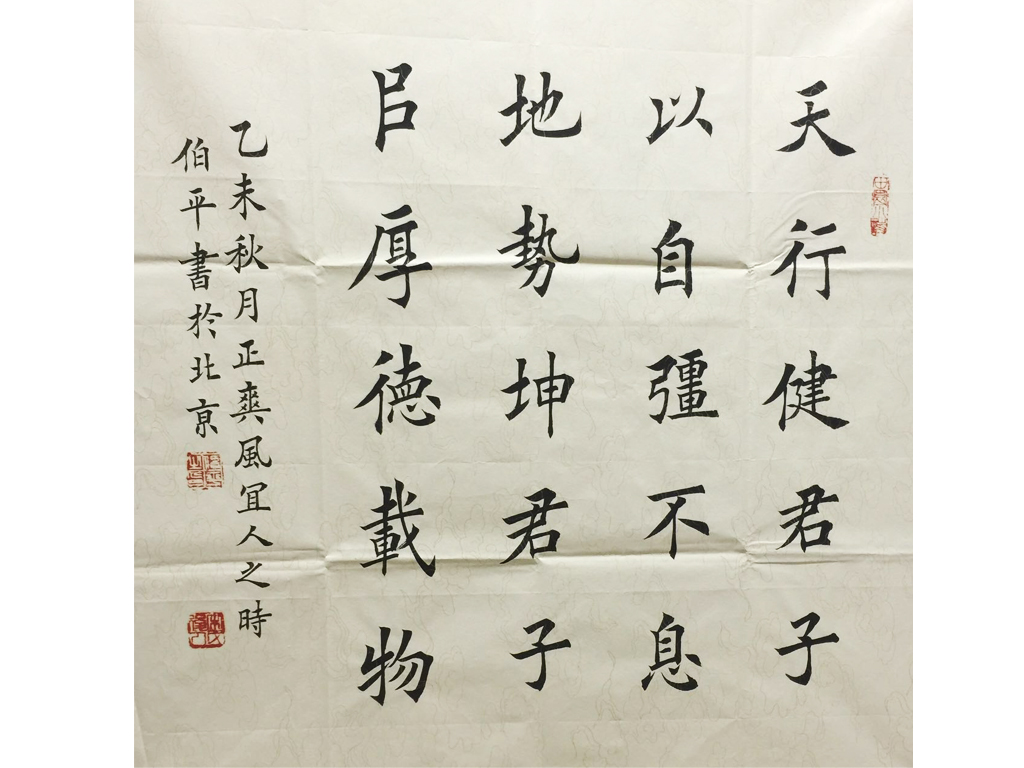 天行健君子
以自彊不息
地勢坤君子
㠯厚德載物
乙未秋月正爽風宜人之時
伯平書於北京